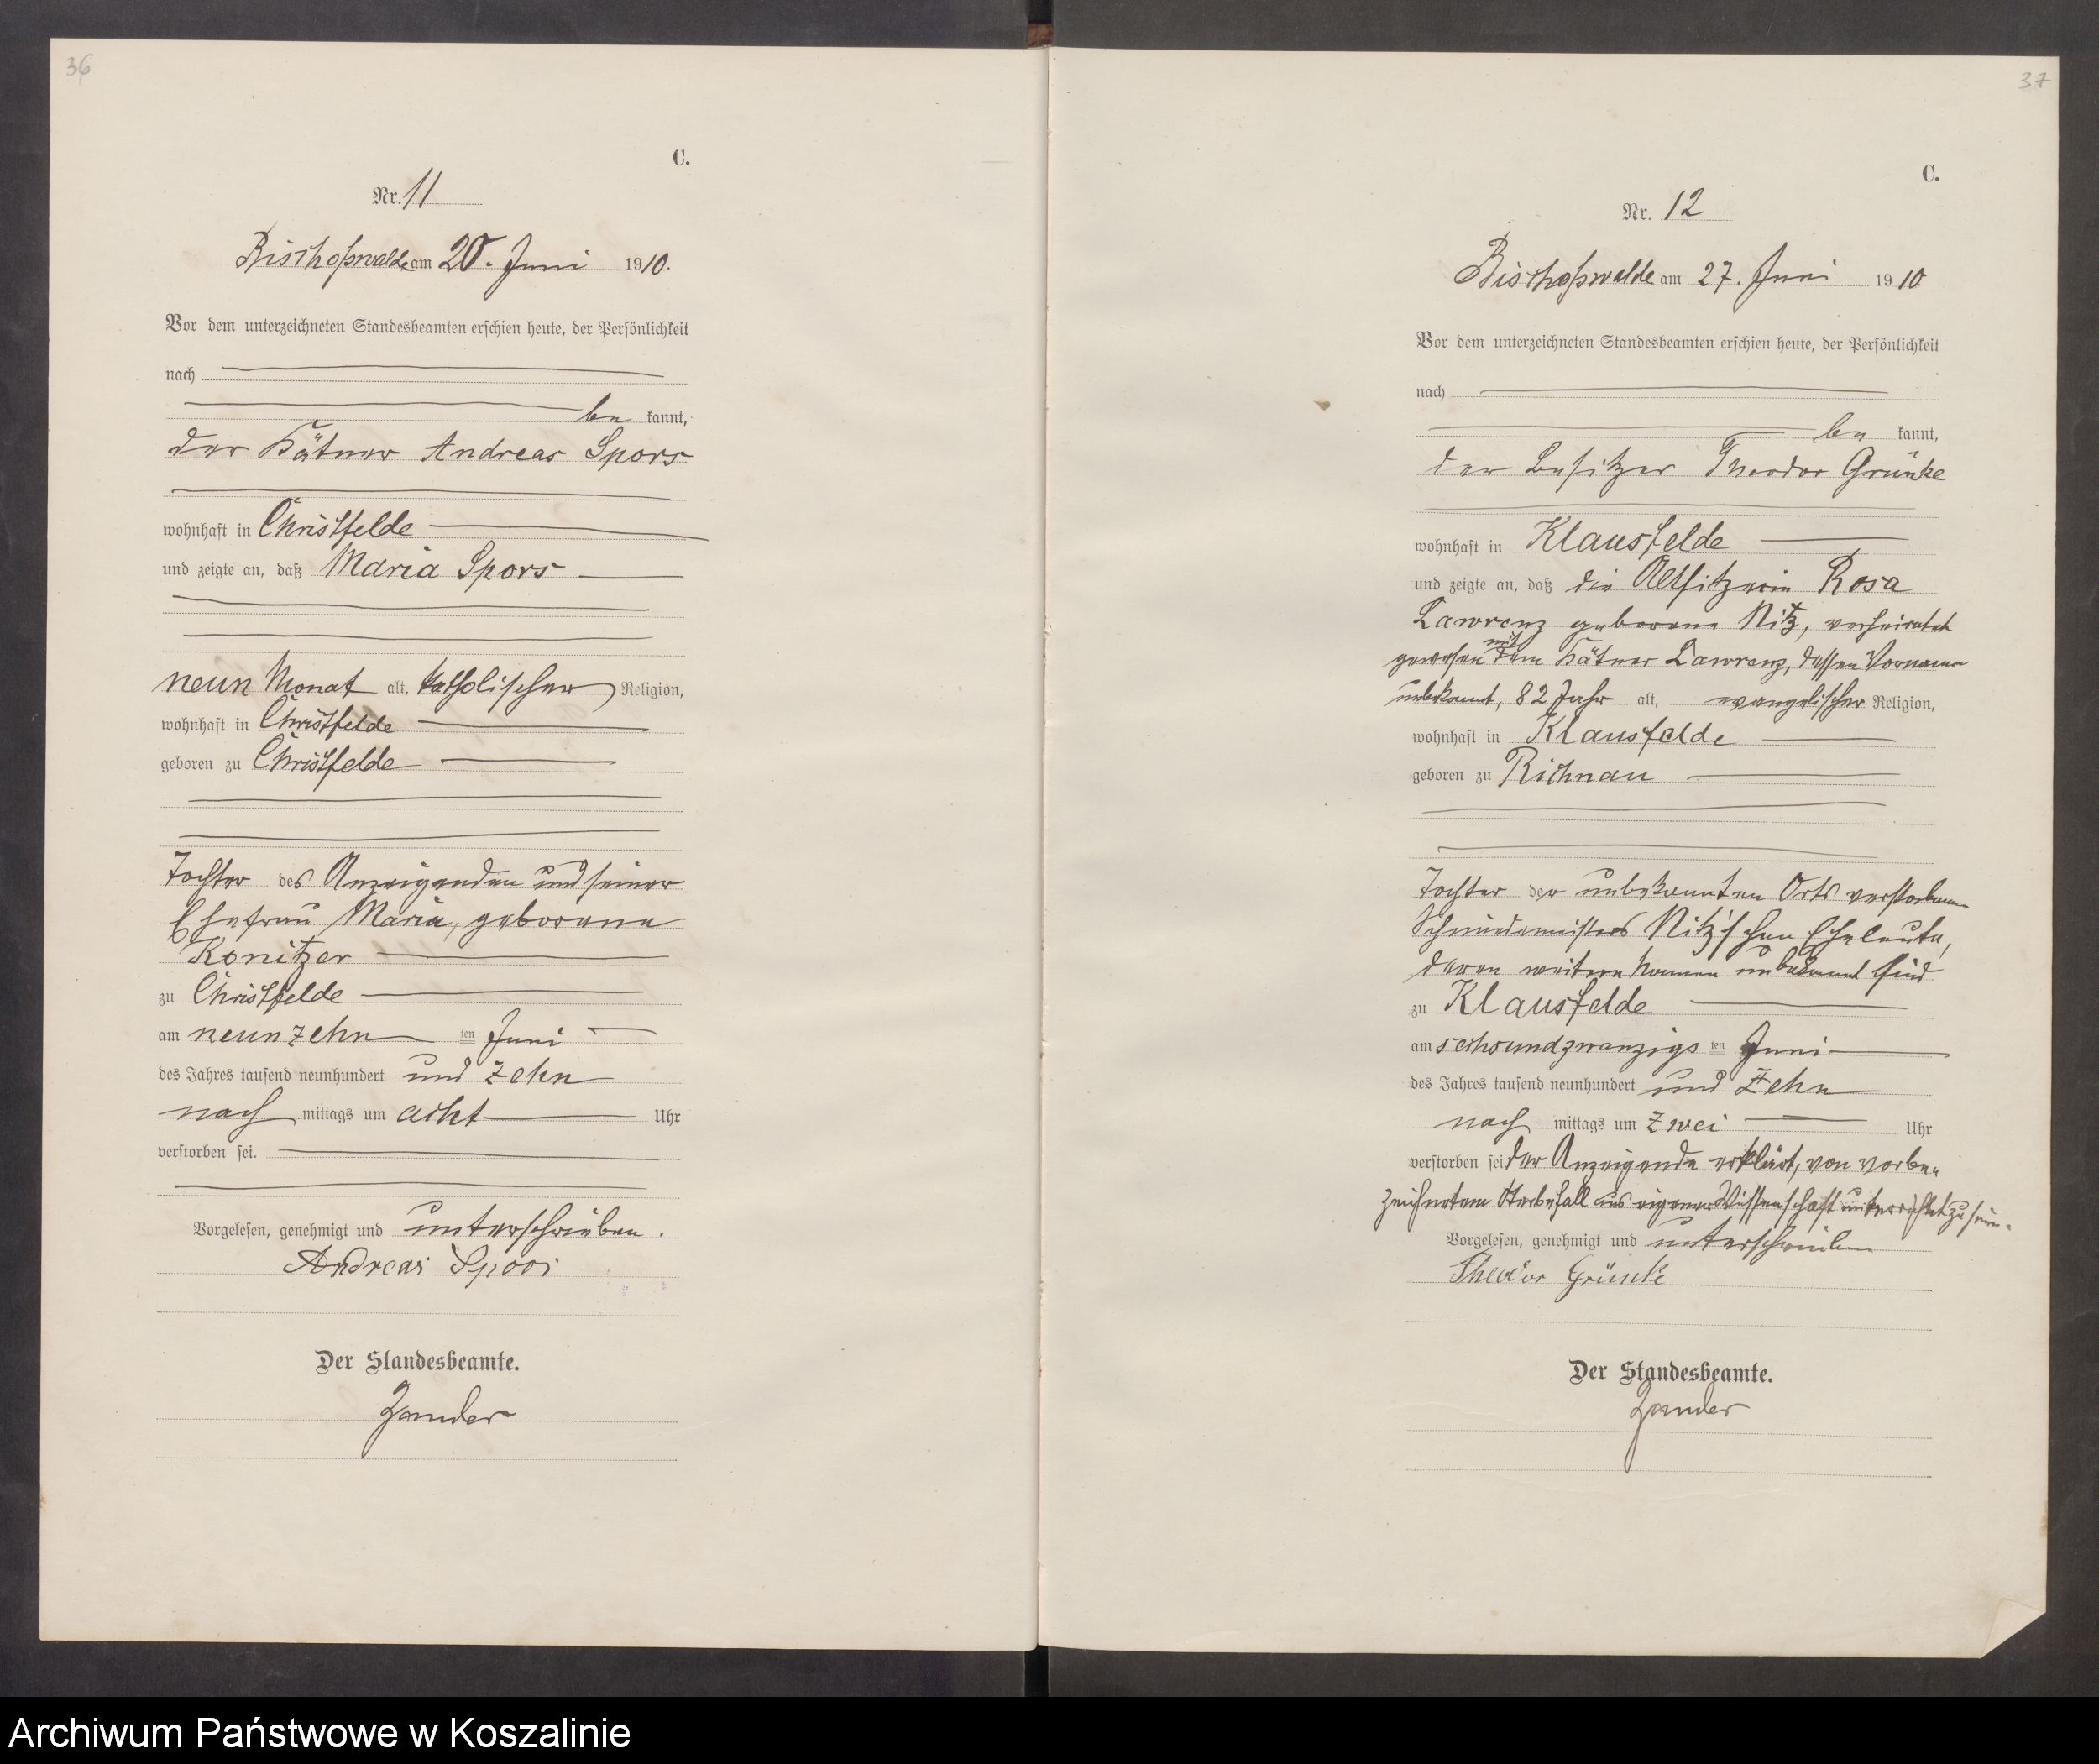 36
C.
Nr. 11
Bischofswalde am 20. Juni 1910.
Vor dem unterzeichneten Standesbeamten erschien heute, der Persönlichkeit
nach
be kannt,
der Kätner Andreas Spors
wohnhaft in Christfelde
und zeigte an, daß Maria Spors
neun Monat alt, katholischer Religion,
wohnhaft in Christfelde
geboren zu Christfelde
Tochter des Anzeigenden und seiner
Ehefrau Maria, geborene
Konitzer
zu Christfelde
am neunzehn ten Juni
des Jahres tausend neunhundert und zehn
nach mittags um acht Uhr
verstorben sei.
Vorgelesen, genehmigt und unterschrieben.
Andreas Spors
Der Standesbeamte.
Zander
37
C.
Nr. 12
Bischofswalde am 27. Juni 1910
Vor dem unterzeichneten Standesbeamten erschien heute, der Persönlichkeit
nach
be kannt,
der Besitzer Theodor Grünke
wohnhaft in Klausfelde
und zeigte an, daß die Altsitzerin Rosa
Lawrenz geborene Nitz, verheiratet
gewesen mit dem Kätner Lawrenz, dessen Vorname
unbekannt, 82 Jahr alt, evangelischer Religion,
wohnhaft in Klausfelde
geboren zu Richnau
Tochter der unbekannten Orts verstorbenen
Schmiedemeisters Nitz'schen Eheleute,
deren weitere Namen unbekannt sind
zu Klausfelde
am sechsundzwanzigs ten Juni
des Jahres tausend neunhundert und zehn
nach mittags um zwei Uhr
verstorben sei der Anzeigende erklärt, von vorbe-
zeichnetem Sterbefall aus eigener Wissenschaft unterrichtet zu sein.
Vorgelesen, genehmigt und unterschrieben
Theodor Grünke
Der Standesbeamte.
Zander
Archiwum Państwowe w Koszalinie